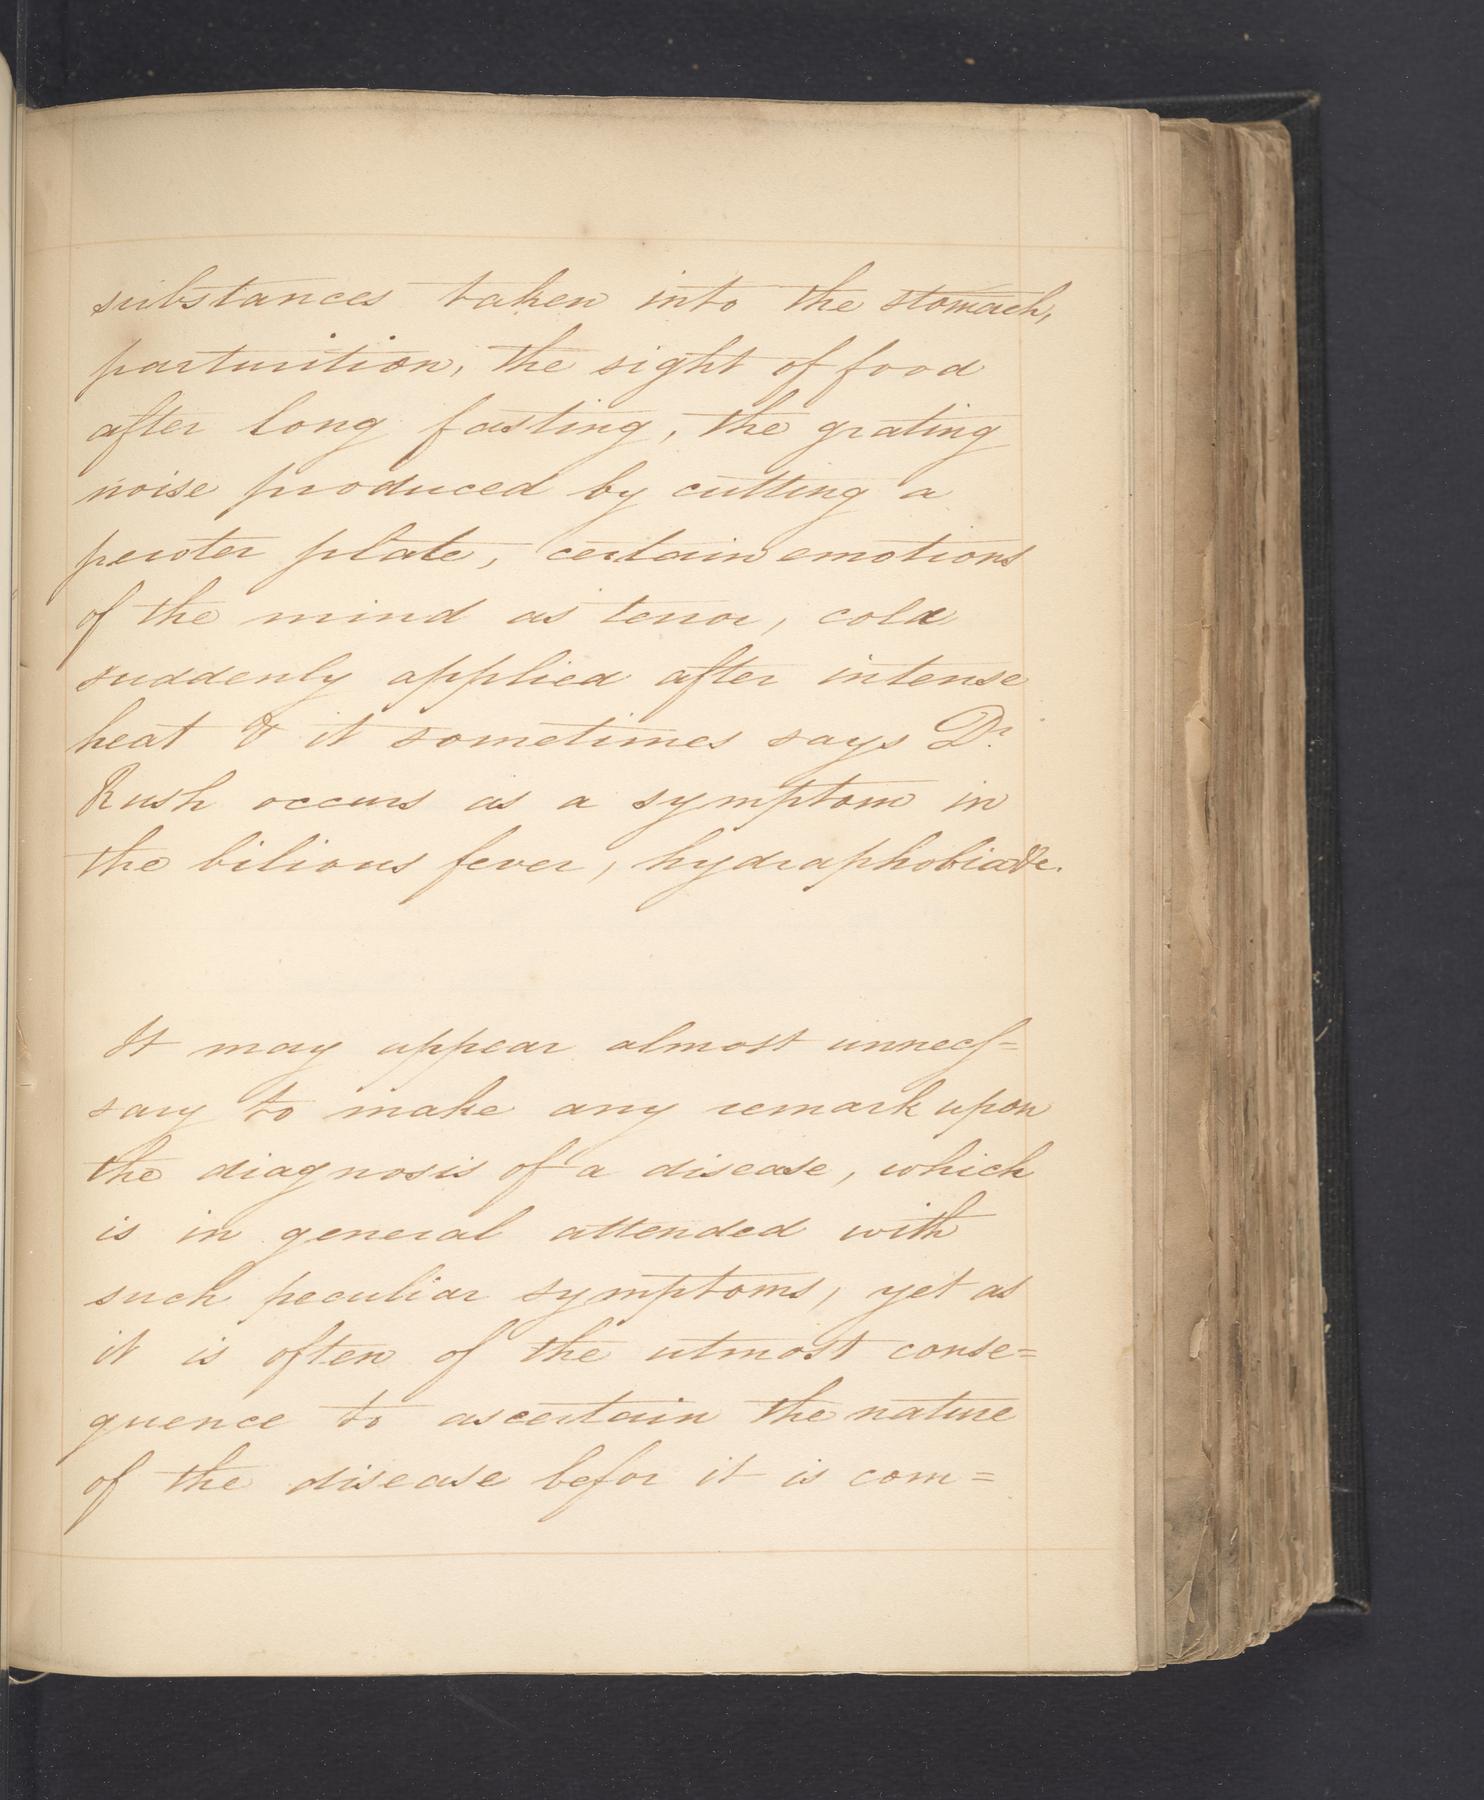 substances taken into the stomach,
parturition, the sight of food
after long fasting, the grating
noise produced by cutting a
pewter plate, certain emotions
of the mind as terror, cold
suddenly applied after intense
heat & it sometimes says Dr.
Rush occurs as a symptom in
the bilious fever, hydraphobia &c.
It may appear almost unnecs=
sary to make any remark upon
the diagnosis of a disease, which
is in general attended with
such peculiar symptoms, yet as
it is often of the utmost conse=
quence to ascertain the nature
of the disease befor it is com=